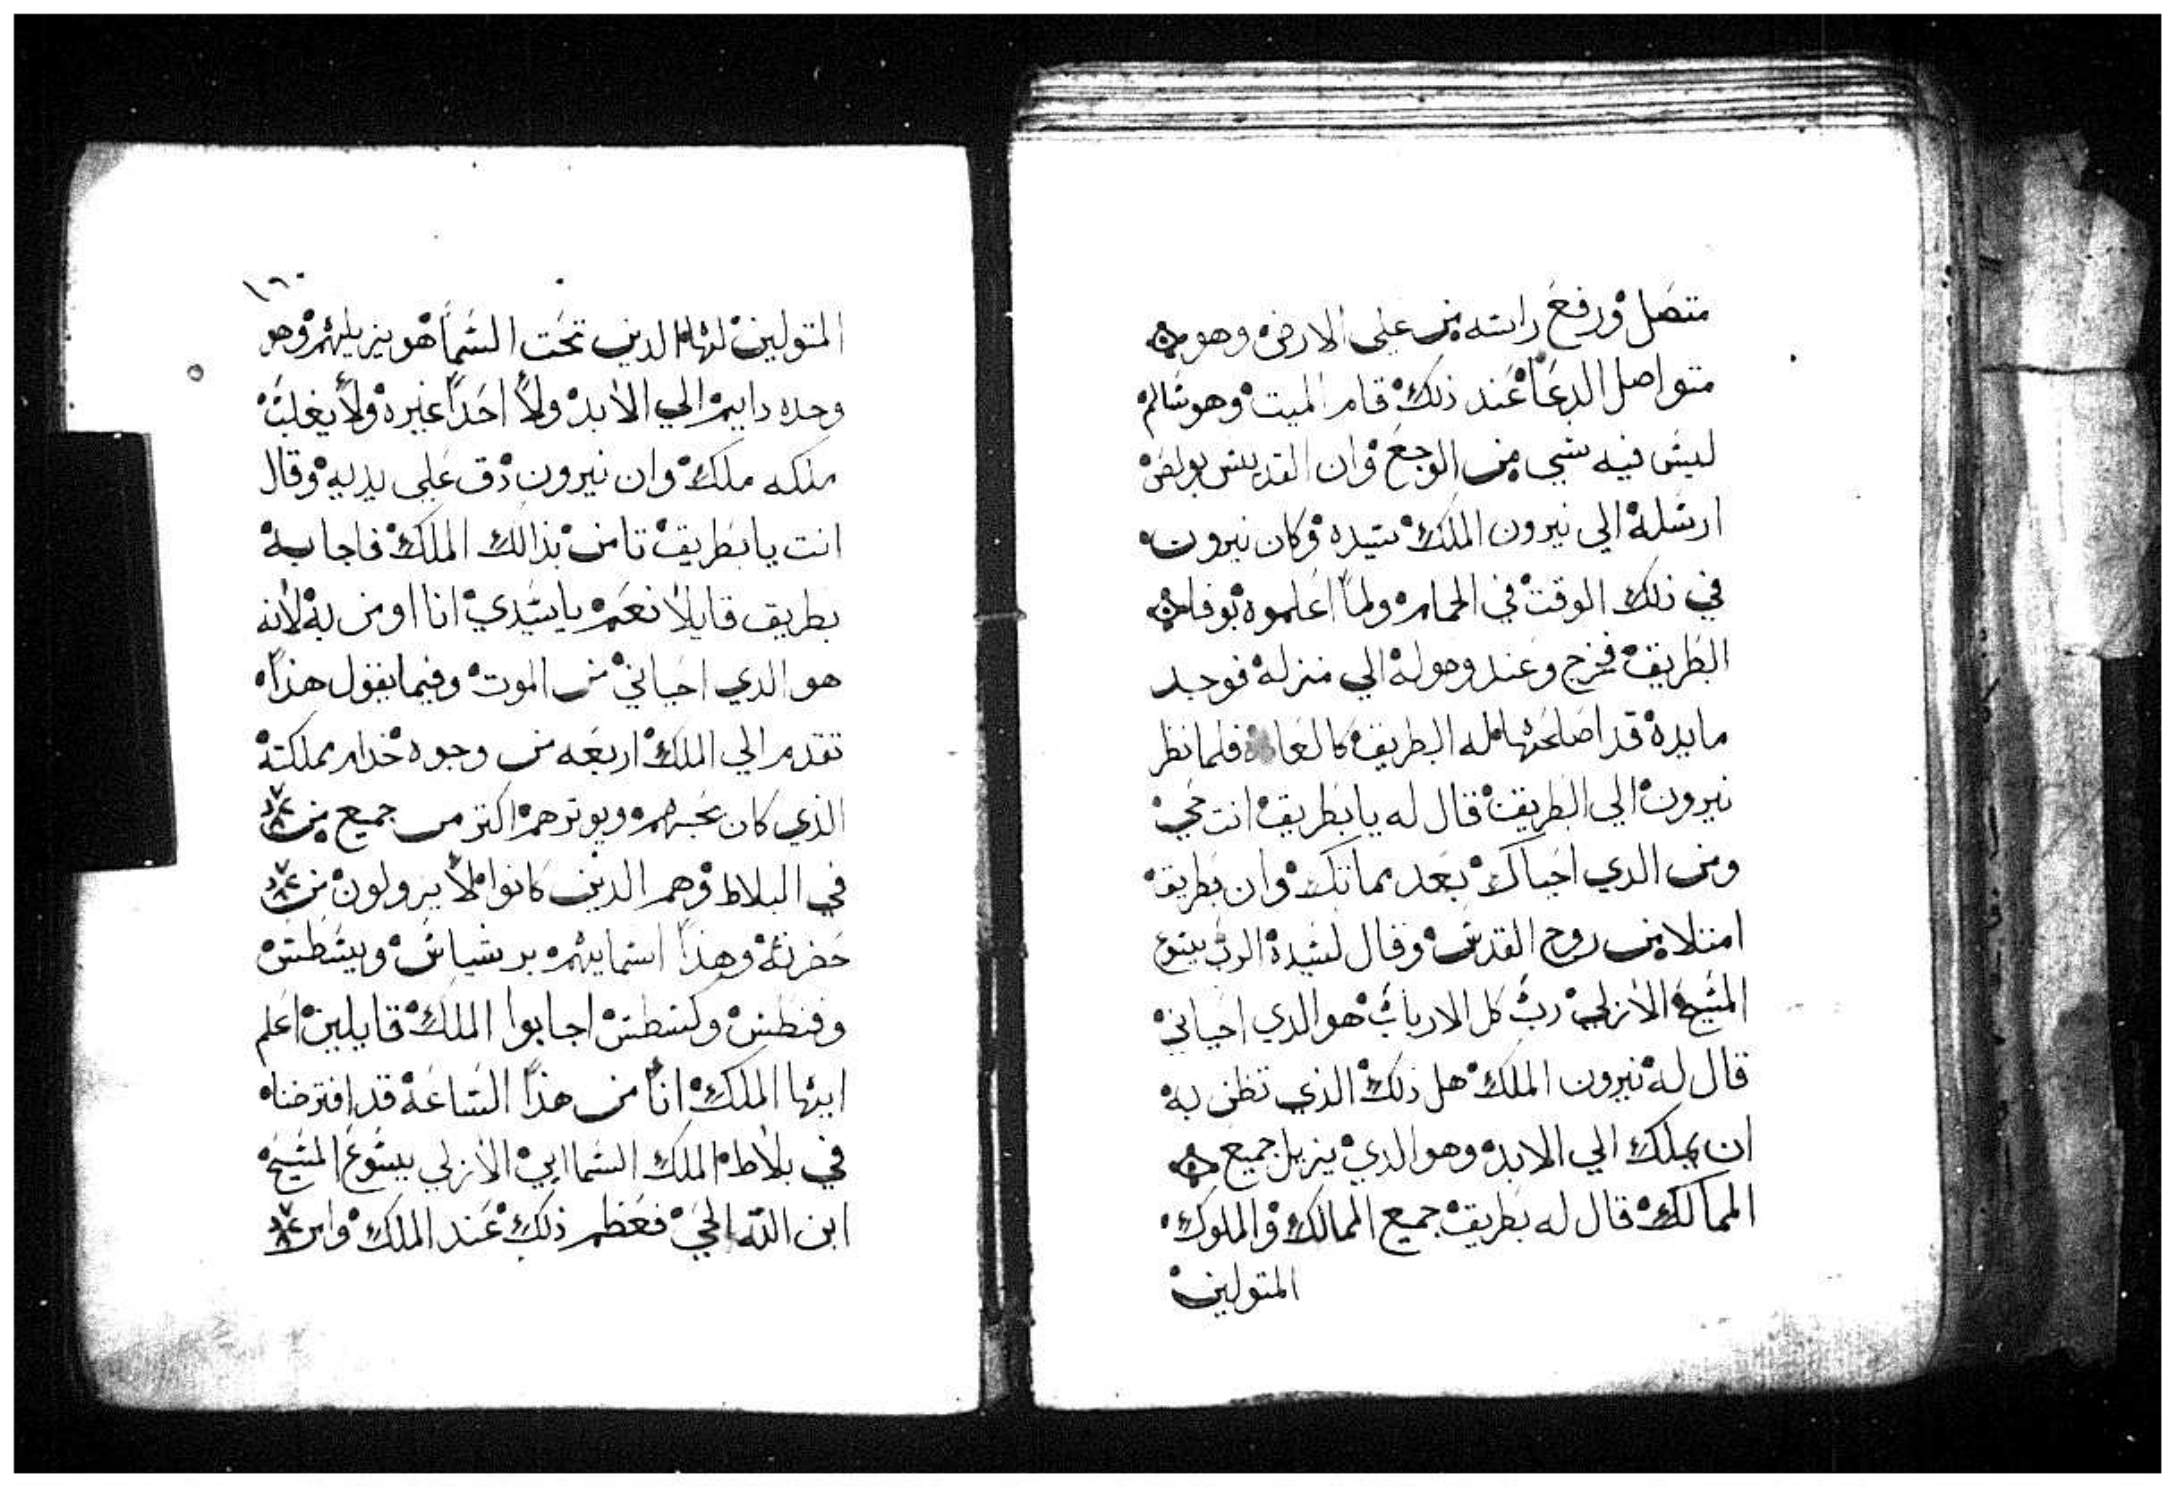 متصل ورفع راسه من علي الارض وهو
متواصل الدعا عند ذلك قام الميت وهو سالم
ليس فيه شي من الوجع وان القديس بولص
ارسله الي نيرون الملك سيده وكان نيرون
في ذلك الوقت في الحمام ولما اعلموه بوفاه
البطريق فخرج وعند وصوله الي منزله فوجد
مايدة قد اصلحتها له البطريق كالعادة فلما نظر
نيرون الي البطريق قال له يا بطريق انت حي
ومن الدي احياك بعد مماتك وان بطريق
امتلا من روح القدس وقال لسيدة الرب يسوع
المسيح الازلي رب كل الارباب هو الدي احياني
قال له نيرون الملك هل ذلك الذي تظن به
ان يملك الي الابد وهو الدي يزيل جميع
الممالك قال له بطريق جميع الممالك والملوك
المتولين
١٦٠
المتولين لها الدين تحت السما هو يزيلهم وهو
وحده دايم الي الابد ولا احدا غيره ولا يغلب
ملكه ملك وان نيرون دق علي يديه وقال
انت يا بطريق تامن بذالك الملك فاجابه
بطريق قايلا نعم يا سيدي انا اومن به لانه
هو الدي احياني من الموت وفيما يقول هذا
تقدم الي الملك اربعه من وجوه خدام مملكته
الذي كان يحبهم ويوترهم اكتر من جميع من
في البلاط وهم الدين كانوا لا يزولون من
حضرته وهذا اسمايهم برسباس ويسطس
وفنطس وكسطس اجابوا الملك قايلين اعلم
ايها الملك انا من هذا الساعة قد افترضنا
في بلاط الملك السمااىي الازلي يسوع المسيح
ابن الله الحي فعظم ذلك عند الملك وامر